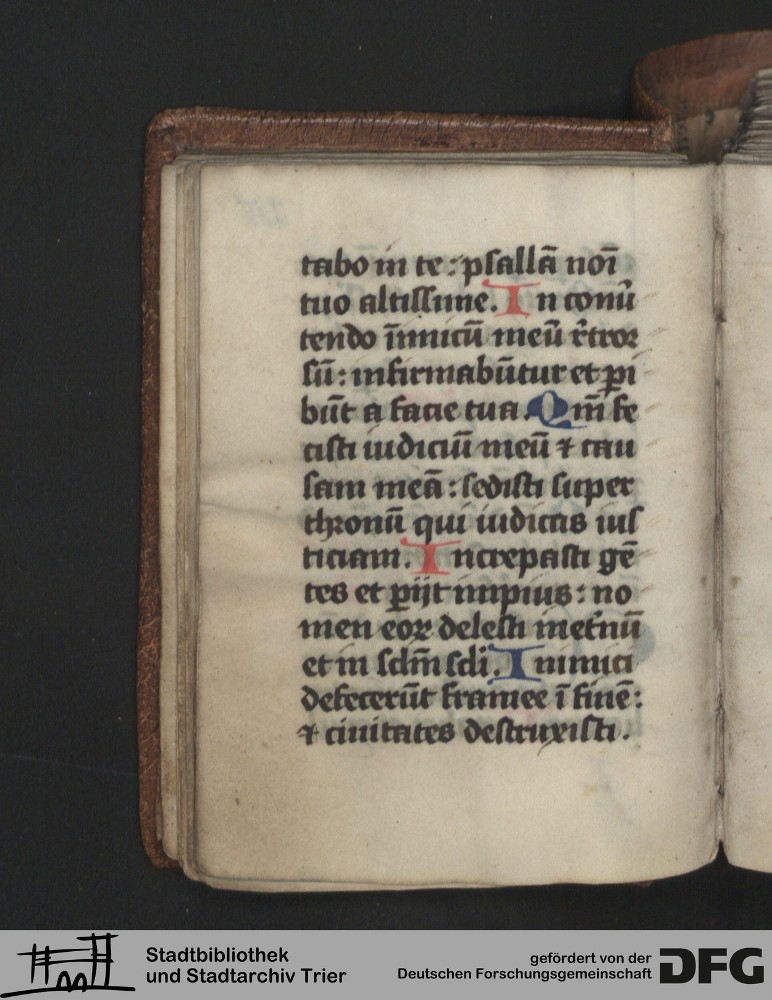 tabo in te : psallā noī
tuo altissime. In conu̓
tendo īimicū meū r̓tror
sū : infirmabūtur et ꝑi
būt a facie tua. Qm̄ fe
cisti iudiciū meū ⁊ cau
sam meā : sedisti super
thronū qui iudicas ius
ticiam. Increpasti gē
tes et ꝑijt impius : no
men eoꝝ delesti inet̓nū
et in sclm̄ scli. Inimici
defecerūt framee ī finē :
⁊ ciuitates destruxisti .
Stadtbibliothek
und Stadtarchiv Trier
gefördert von der
Deutschen Forschungsgemeinschaft
DFG